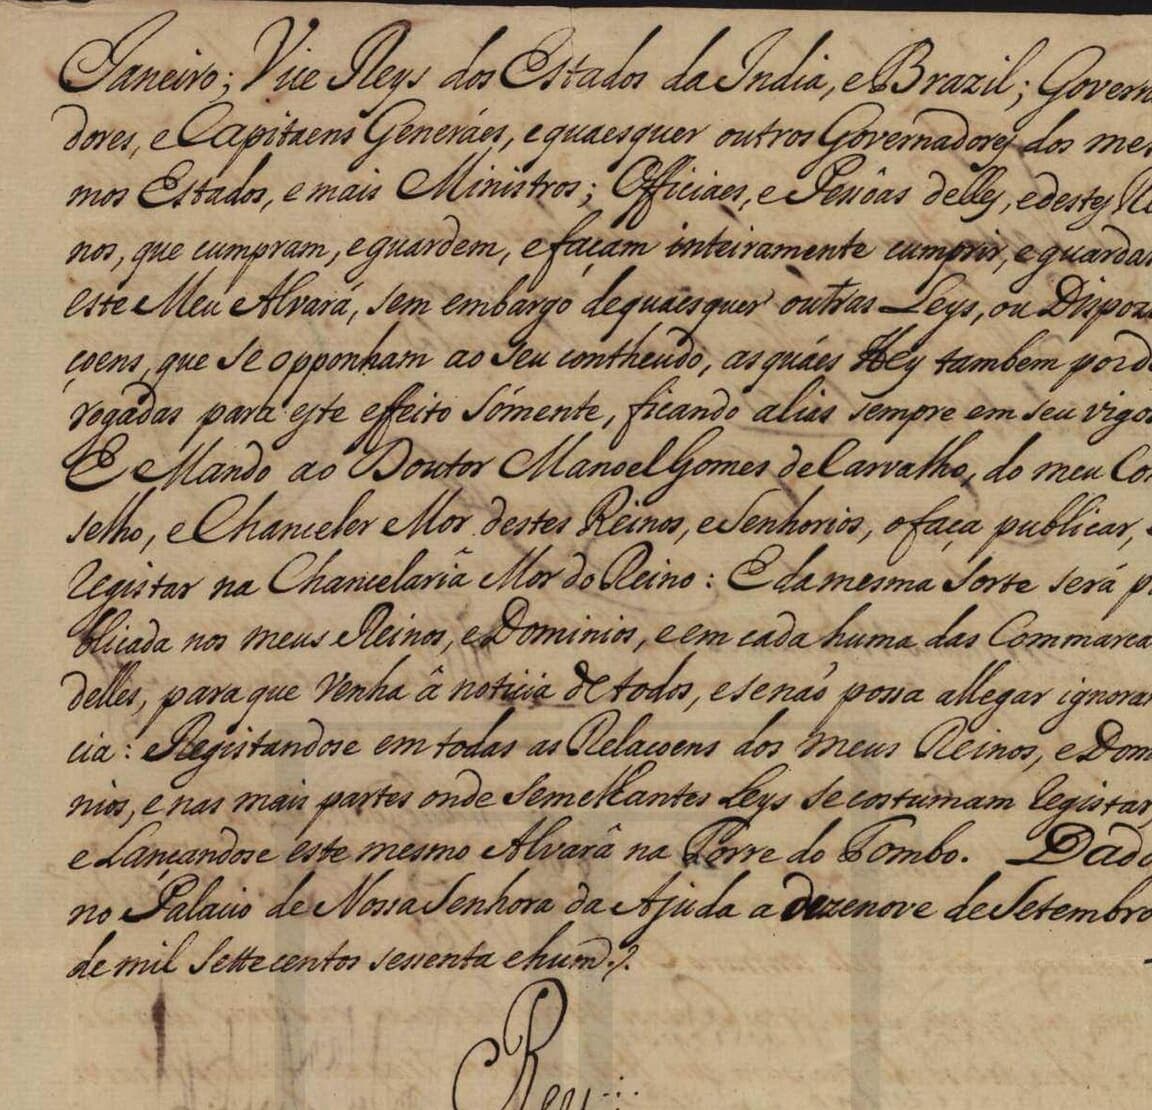 Janeiro; Vice Reys dos Estados da India, e Brazil; Governa
dores, e Capitaens Generáes, e quaesquer outros Governadores dos mes
mos Estados, e mais Ministros; Officiaes, e Pessôas delles, e destes Rei
nos, que cumpram, e guardem, e façam inteiramente cumprir, e guardar
este Meu Alvará, sem embargo de quaesquer outras Leys, ou Dispozi
çoens, que se opponham ao seu contheudo, as quáes Hey tambem por de
rogadas para este effeito sómente, ficando alias sempre em seu vigor
E Mando ao Doutor Manoel Gomes de Carvalho, do meu Con
selho, e Chanceler Mor destes Reinos, e Senhorios, o faça publicar, e
registar na Chancelariâ Mor do Reino: E da mesma sorte será pu
blicada nos meus Reinos, e Dominios, e em cada huma das Commarcas
delles, para que venha â noticia de todos, e se naõ possa allegar ignoran
cia: e Registandose em todas as Relaçoens dos meus Reinos, e Domi
nios, e nas mais partes onde semelhantes Leys se costumam registar,
e Lançandose este mesmo Alvarâ na Torre do Tombo. Dado
no Palacio de Nossa Senhora da Ajuda a dezenove de Setembro
de mil sette centos sessenta e hum.
Rey